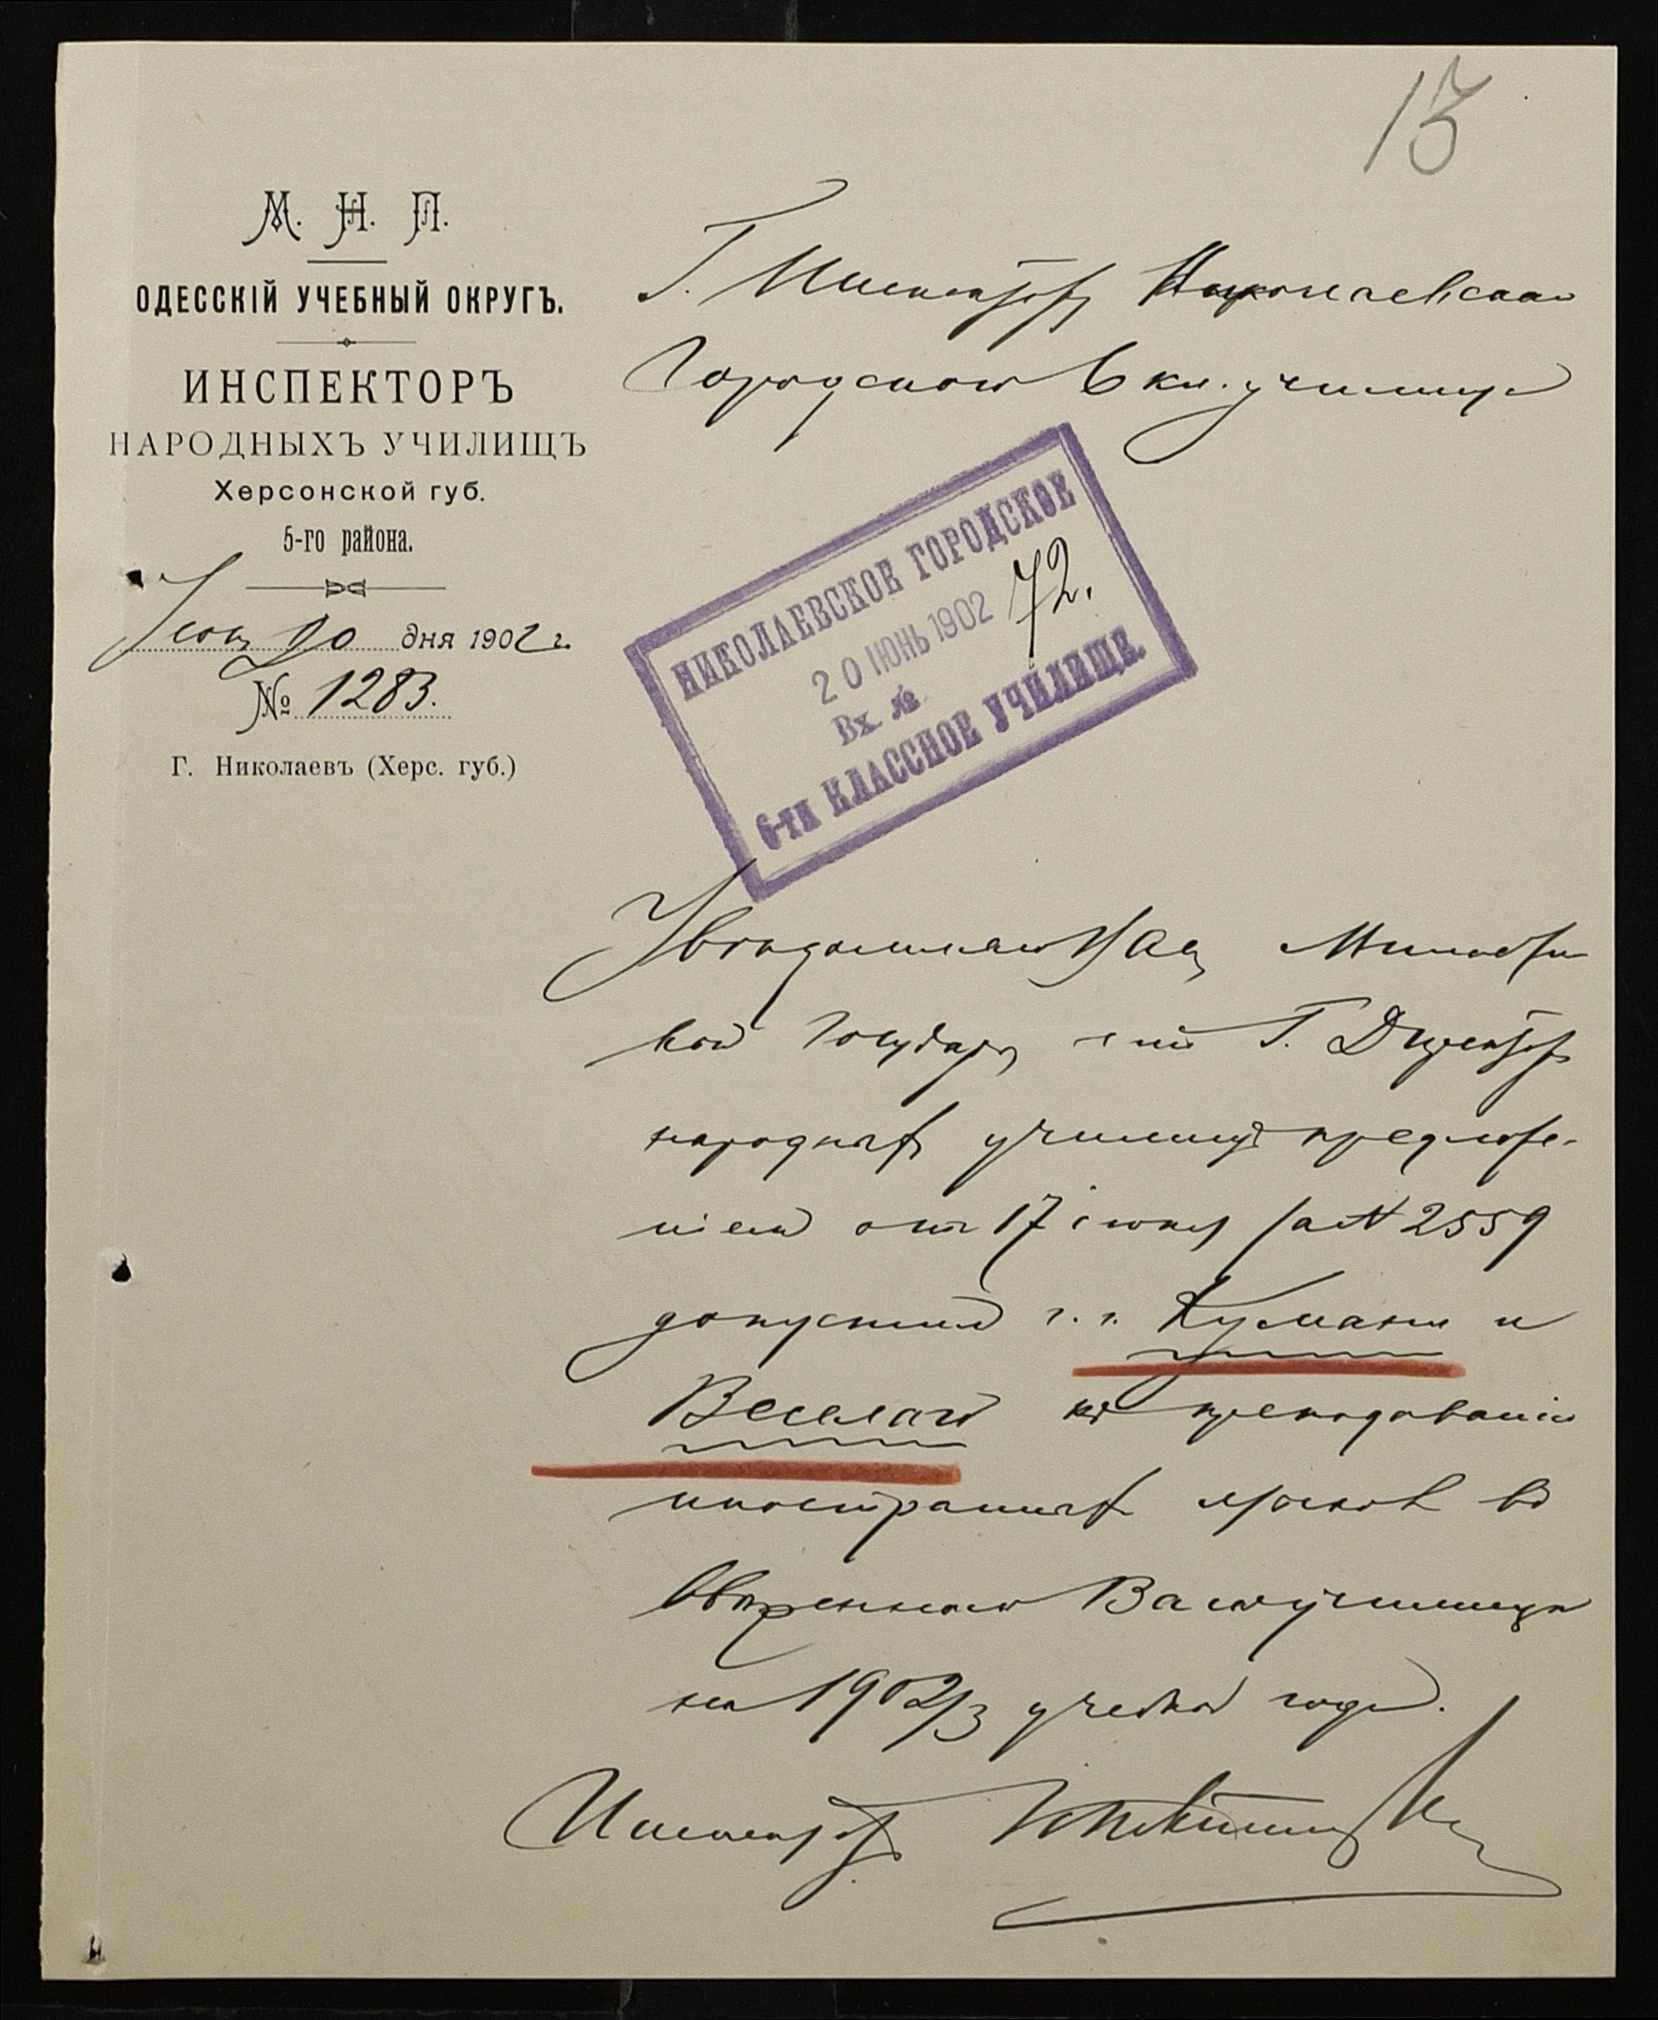 13
М. Н. П.
ОДЕССКІЙ УЧЕБНЫЙ ОКРУГЪ.
ИНСПЕКТОРЪ
НАРОДНЫХЪ УЧИЛИЩЪ
Херсонской губ.
5-го района.
Іюня 20 дня 1902 г.
№ 1283.
Г. Николаевъ (Херс. губ.)
Г. Инспектору Николаевскаго
Городского 6 кл. училища
НИКОЛАЕВСКОЕ ГОРОДСКОЕ
20 ІЮНЬ 1902
Вх. № 72.
6-ти КЛАССНОЕ УЧИЛИЩЕ.
Увѣдомляю Васъ, Милости
вый Государь, что Г. Директоръ
народныхъ училищъ предложе-
ніемъ отъ 17 іюня за № 2559
допустилъ г. г. Кумани и
Веселаго къ преподаванію
иностранныхъ языковъ во
ввѣренномъ Вамъ училищѣ
на 1902/3 учебный годъ.
Инспекторъ